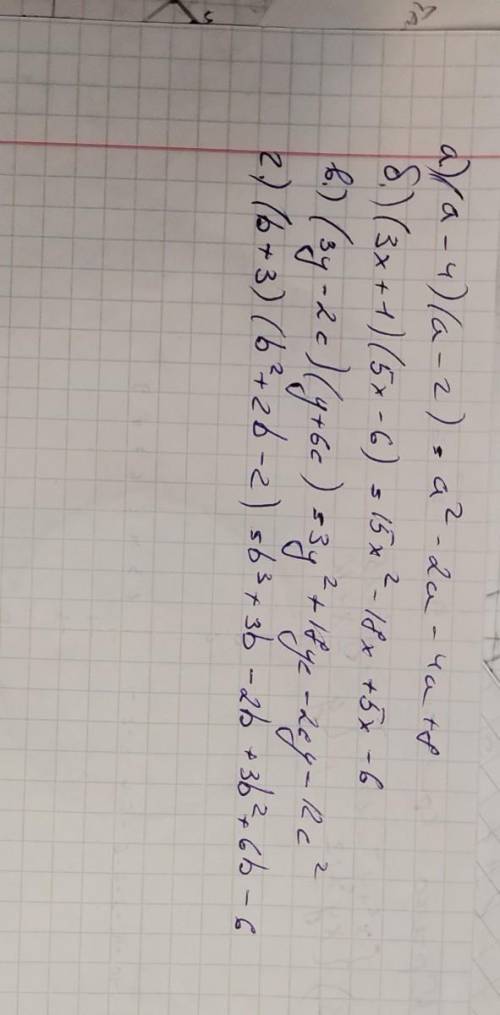 а) (a - 4)(a - 2) = a² - 2a - 4a + 8
б.) (3x + 1)(5x - 6) = 15x² - 18x + 5x - 6
в.) (3y - 2c)(y + 6c) = 3y² + 18yc - 2cy - 12c²
г.) (b + 3)(b² + 2b - 2) = b³ + 3b - 2b + 3b² + 6b - 6